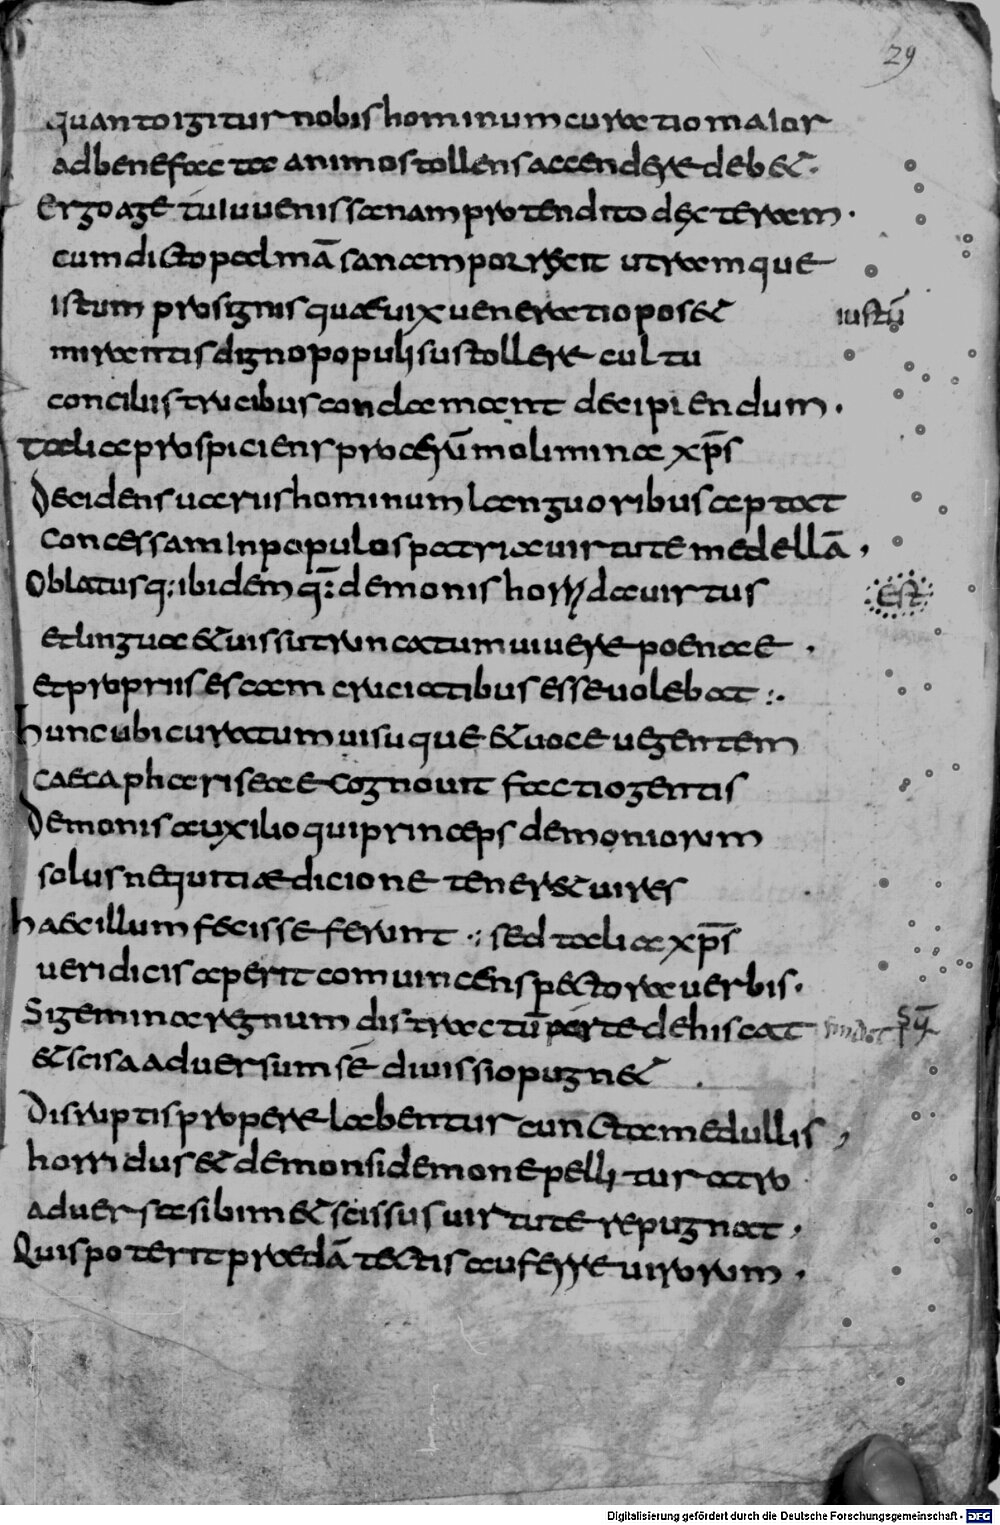 29
quanto igitur nobis hominum curatio maior
ad benefacta animos tollens accendere debet.
Ergo age tu iuuenis sanam protendito dexteram.
cum dicto ad manū sanam porrexit utramque
istum pro signis quae uix ueneratio posset
iustū
mirantis digno populi sustollere cultu
conciliis trucibus condamant decipiendum.
Talia prospiciens procerū molimina xp̄s
Decidens uariis hominum languoribus aptat
concessam In populos patria uirtute medellā,
Oblatusq; ibidem q̄: demonis horrida uirtus
est
et linguae et uissu truncatum uiuere poenae.
et propriis escam cruciatibus esse uolebat :.
hunc ubi curatum uisuque et uoce uegentem
caeca phariseae cognouit factio gentis
Demonis auxilio qui princeps demoniorum
solus nequitiae dicione teneret uires
haec illum fecisse ferunt .; sed talia xp̄s
ueridicis aperit conuincens pectora uerbis.
Si gemina regnum distractū parte dehiscat
et scisa aduersum se diuissio pugnet.
Disruptis propere labentur cuncta medullis,
horridus et demon si demone pellitur atro
aduersa sibimet scissus uirtute repugnat,
Quis poterit praedā tectis auferre uirorum.
Digitalisierung gefördert durch die Deutsche Forschungsgemeinschaft - DFG